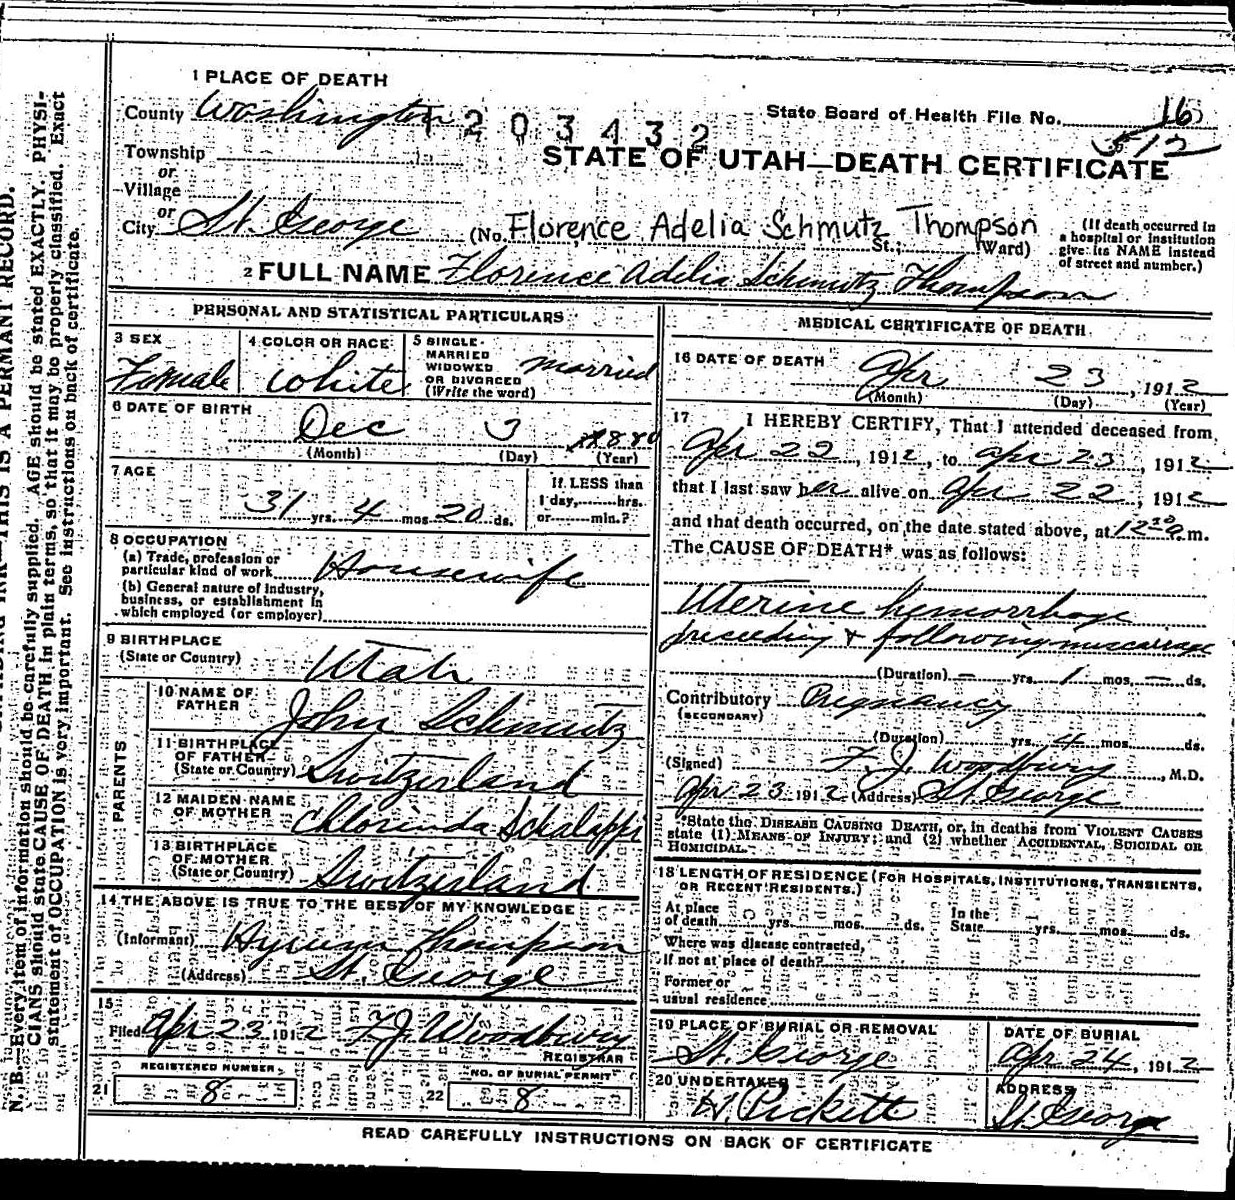 1 PLACE OF DEATH
County Washington
1203432
State Board of Health File No. 16
512
Township
or
Village
or
City St. George
STATE OF UTAH—DEATH CERTIFICATE
(No. Florence Adelia Schmutz Thompson St.; Ward)
(If death occurred in
a hospital or institution
give its NAME instead
of street and number.)
2 FULL NAME Florence Adelia Schmutz Thompson
PERSONAL AND STATISTICAL PARTICULARS
3 SEX
Female
4 COLOR OR RACE
White
5 SINGLE
MARRIED
WIDOWED
OR DIVORCED
(Write the word)
married
6 DATE OF BIRTH
Dec 3 1880
(Month) (Day) (Year)
7 AGE
31 yrs. 4 mos. 20 ds.
If LESS than
1 day, hrs.
or min.?
8 OCCUPATION
(a) Trade, profession or
particular kind of work Housewife
(b) General nature of industry,
business, or establishment in
which employed (or employer)
9 BIRTHPLACE
(State or Country) Utah
PARENTS
10 NAME OF
FATHER John Schmutz
11 BIRTHPLACE
OF FATHER
(State or Country) Switzerland
12 MAIDEN NAME
OF MOTHER Chlorinda Schalappi
13 BIRTHPLACE
OF MOTHER
(State or Country) Switzerland
14 THE ABOVE IS TRUE TO THE BEST OF MY KNOWLEDGE
(Informant) Hyrum Thompson
(Address) St. George
15
Filed Apr 23 1912 F. J. Woodbury
REGISTRAR
REGISTERED NUMBER
21 8
NO. OF BURIAL PERMIT
22 8
MEDICAL CERTIFICATE OF DEATH
16 DATE OF DEATH
Apr 23, 1912
(Month) (Day) (Year)
17 I HEREBY CERTIFY, That I attended deceased from
Apr 22, 1912, to Apr 23, 1912
that I last saw her alive on Apr 22, 1912
and that death occurred, on the date stated above, at 12 m.
The CAUSE OF DEATH* was as follows:
Uterine hemorrhage
preceeding & following miscarriage
(Duration) — yrs. 1 mos. — ds.
Contributory Pregnancy
(SECONDARY)
(Duration) yrs. 4 mos. ds.
(Signed) F. J. Woodbury, M.D.
Apr 23 1912 (Address) St. George
*State the DISEASE CAUSING DEATH, or, in deaths from VIOLENT CAUSES
state (1) MEANS OF INJURY; and (2) whether ACCIDENTAL, SUICIDAL OR
HOMICIDAL.
18 LENGTH OF RESIDENCE (FOR HOSPITALS, INSTITUTIONS, TRANSIENTS,
OR RECENT RESIDENTS.)
At place
of death yrs. mos. ds.
In the
State yrs. mos. ds.
Where was disease contracted,
if not at place of death?
Former or
usual residence
19 PLACE OF BURIAL OR REMOVAL
St. George
DATE OF BURIAL
Apr 24, 1912
20 UNDERTAKER
H. Pickett
ADDRESS
St. George
READ CAREFULLY INSTRUCTIONS ON BACK OF CERTIFICATE
INK—THIS IS A PERMANT RECORD.
N. B.—Every item of information should be carefully supplied. AGE should be stated EXACTLY. PHYSI-
CIANS should state CAUSE OF DEATH in plain terms, so that it may be properly classified. Exact
statement of OCCUPATION is very important. See instructions on back of certificate.